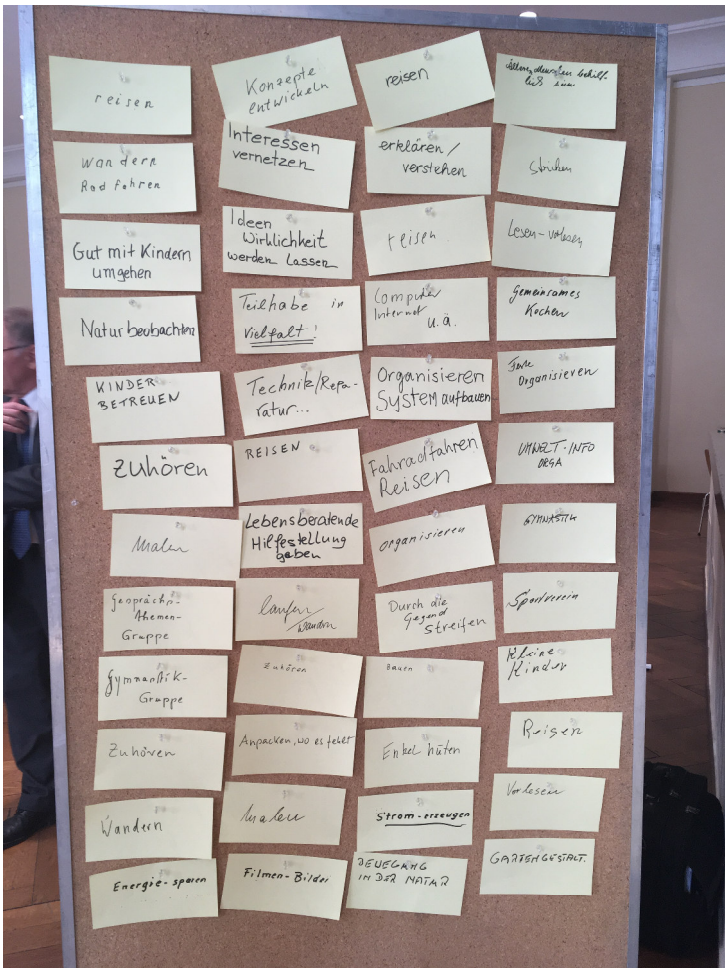 reisen
wandern
Rad fahren
Gut mit Kindern
umgehen
Natur beobachten
KINDER
BETREUEN
Zuhören
Malen
Gesprächs-
themen-
Gruppe
Gymnastik-
Gruppe
Zuhören
Wandern
Energie-sparen
Konzepte
entwickeln
Interessen
vernetzen
Ideen
Wirklichkeit
werden lassen
Teilhabe in
Vielfalt!
Technik/Repa-
ratur...
REISEN
Lebensberatende
Hilfestellung
geben
laufen/
wandern
Zuhören
Anpacken, wo es fehlt
Malen
Filmen-Bilder
reisen
erklären/
verstehen
reisen
Computer
Internet
u.ä.
Organisieren
System aufbauen
Fahradfahren
Reisen
organisieren
Durch die
Gegend
streifen
Bauen
Enkel hüten
Strom-erzeugen
BEWEGUNG
IN DER NATUR
behilf-
lich
stricken
Lesen-vorlesen
Gemeinsames
Kochen
Feste
Organisieren
UMWELT-INFO
ORGA
GYMNASTIK
Sportverein
Kleine
Kinder
Reisen
Vorlesen
GARTENGESTALT.